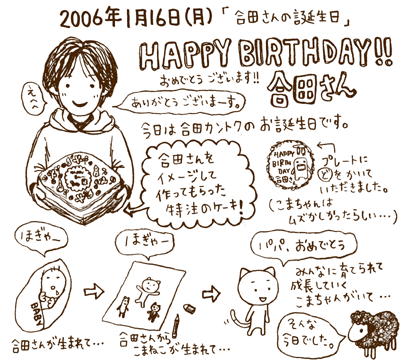 2006年1月16日(月)「合田さんの誕生日」
HAPPY BIRTHDAY!!
おめでとうございます!!
合田さん
えへ
ありがとうございまーす。
今日は合田カントクのお誕生日です。
合田さんを
イメージして
作ってもらった
特注のケーキ!
HAPPY
BIRTH
DAY
合田
プレートに
をかいて
いただきました。
(こまちゃんは
ムズかしかったらしい…)
ほぎゃー
BABY
合田さんが生まれて…
ほぎゃー
合田さんから
こまねこが生まれて…
パパ、おめでとう
みんなに育てられて
成長していく
こまちゃんがいて…
そんな
今日でした。